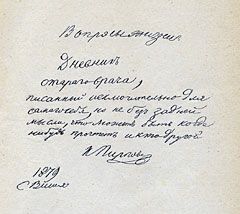 Вопросы жизни.
Дневникъ
стараго врача,
писанный исключительно для
самого себя, но не без задней
мысли, что может быть когда
нибудь прочтет и кто другой
Н. Пирогов
1879
С. Вишня